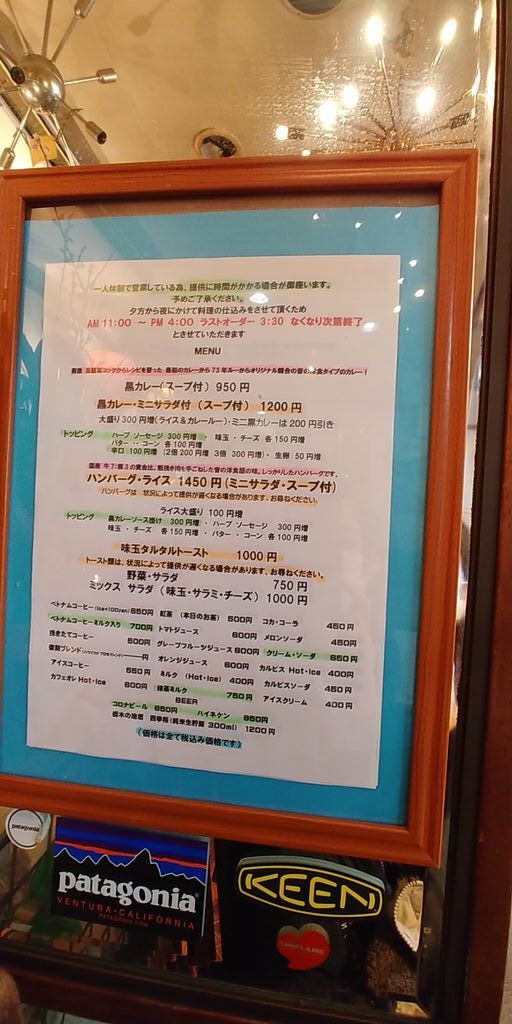 一人体制で営業している為、提供に時間がかかる場合が御座います。
予めご了承ください。
夕方から夜にかけて料理の仕込みをさせて頂くため
AM 11:00 ～ PM 4:00 ラストオーダー 3:30 なくなり次第終了
とさせていただきます
MENU
黒カレー(スープ付) 950円
黒カレー・ミニサラダ付 (スープ付) 1200円
大盛り300円増(ライス&カレールー)・ミニ黒カレーは200円引き
トッピング ハーブ ソーセージ 300円増 ・ 味玉・チーズ 各150円増
バター・・コーン 各100円増
辛口 100円増 (2倍 200円増 3倍 300円増)・生卵 50円増
国産 牛7:豚3の黄金比、粗挽き肉を手ごねした昔の洋食屋の味。しっかりしたハンバーグです。
ハンバーグ・ライス 1450円 (ミニサラダ・スープ付)
ハンバーグは 状況によって提供が遅くなる場合があります、お尋ねください。
ライス大盛り 100円増
トッピング 黒カレーソース掛け 300円増 ・ ハーブ ソーセージ 300円増
味玉 ・ チーズ 各150円増 ・ バター ・ コーン 各100円増
味玉タルタルトースト 1000円
トースト類は、状況によって提供が遅くなる場合があります、お尋ねください。
野菜・サラダ 750円
ミックス サラダ (味玉・サラミ・チーズ) 1000円
ベトナムコーヒー 650円 紅茶 (本日のお茶) 500円 コカ・コーラ 450円
ベトナムコーヒーミルク入り 700円 トマトジュース 600円 メロンソーダ 450円
挽きたてコーヒー 500円 グレープフルーツジュース 600円 クリーム・ソーダ 650円
復刻ブレンド 円 オレンジジュース 600円 カルピス Hot・Ice 400円
アイスコーヒー 550円 ミルク (Hot・Ice) 400円 カルピスソーダ 450円
カフェオレ Hot・Ice 600円 抹茶ミルク 750円 アイスクリーム 400円
BEER
コロナビール 650円 ハイネケン 650円
栃木の地酒 四季桜(純米生貯蔵 300ml) 1200円
(価格は全て税込み価格です)
patagonia
patagonia
VENTURA・CALIFORNIA
PATAGONIA.COM
KEEN